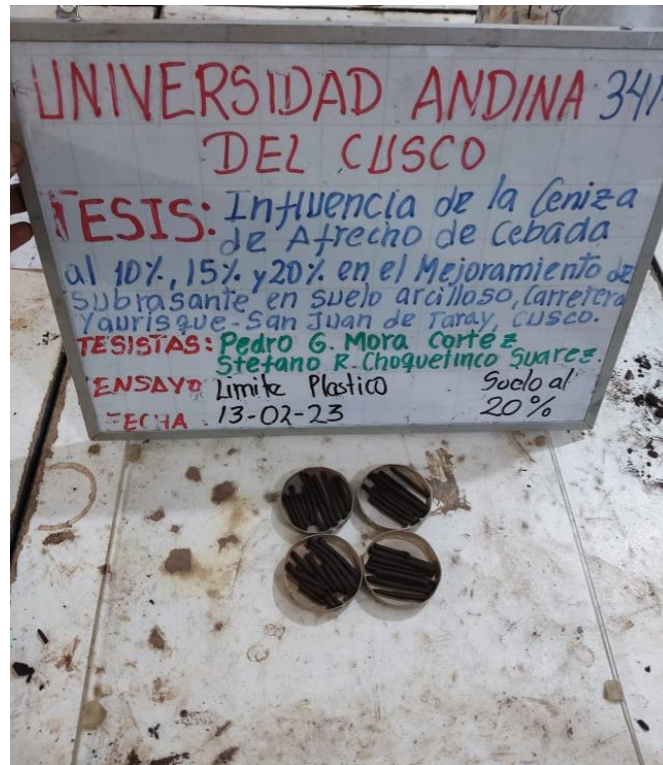 UNIVERSIDAD ANDINA 341
DEL CUSCO
TESIS: Influencia de la Ceniza
de Afrecho de Cebada
al 10%, 15% y 20% en el Mejoramiento de
Subrasante en suelo arcilloso, Carretera
Yaurisque-San Juan de Taray, Cusco.
TESISTAS: Pedro G. Mora Cortez
Stefano R. Choquetinco Suarez.
ENSAYO Limite Plastico Suelo al
FECHA : 13-02-23 20%